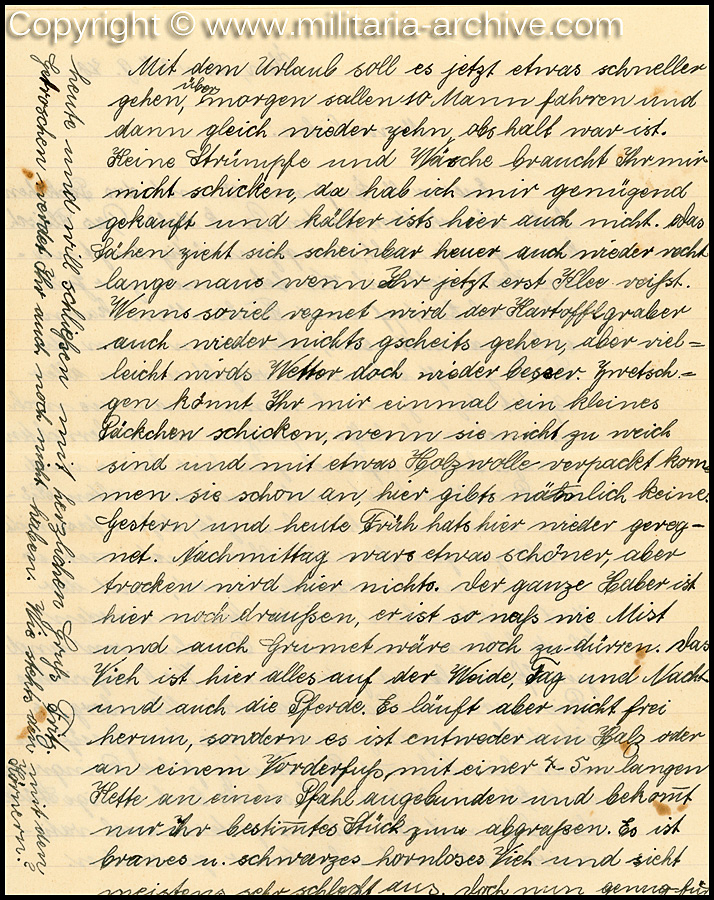 Copyright © www.militaria-archive.com
Mit dem Urlaub soll es jetzt etwas schneller
gehen, übermorgen sollen 10 Mann fahren und
dann gleich wieder zehn, obs halt war ist.
Keine Strümpfe und Wäsche braucht Ihr mir
nicht schicken, da hab ich mir genügend
gekauft und kälter ists hier auch nicht. Das
Sähen zieht sich scheinbar heuer auch wieder recht
lange naus wenn Ihr jetzt erst Klee reißt.
Wenns soviel regnet wird der Kartofflgraber
auch wieder nichts gscheits gehen, aber viel=
leicht wirds Wetter doch wieder besser. Zwetsch=
gen könnt Ihr mir einmal ein kleines
Päckchen schicken, wenn sie nicht zu weich
sind und mit etwas Holzwolle verpackt kom
men sie schon an, hier gibts nämlich keine.
Gestern und heute Früh hats hier wieder gereg=
net. Nachmittag wars etwas schöner, aber
trocken wird hier nichts. Der ganze Haber ist
hier noch draußen, er ist so naß wie Mist
und auch Grumet wäre noch zu dürren. Das
Vieh ist hier alles auf der Weide, Tag und Nacht
und auch die Pferde. Es läuft aber nicht frei
herum, sondern es ist entweder am Hals oder
an einem Vorderfuß mit einer 4-5m langen
Kette an einen Pfahl angebunden und bekommt
nur ihr bestimmtes Stück zum abgraßen. Es ist
branes u. schwarzes hornloses Vieh und sieht
meistens sehr schlecht aus. Doch nun genug für
heute und will schließen mit herzlichen Gruß Fritz.
Gedroschen werdet Ihr auch noch nicht haben. Wie stehts den mit den
Körnern?